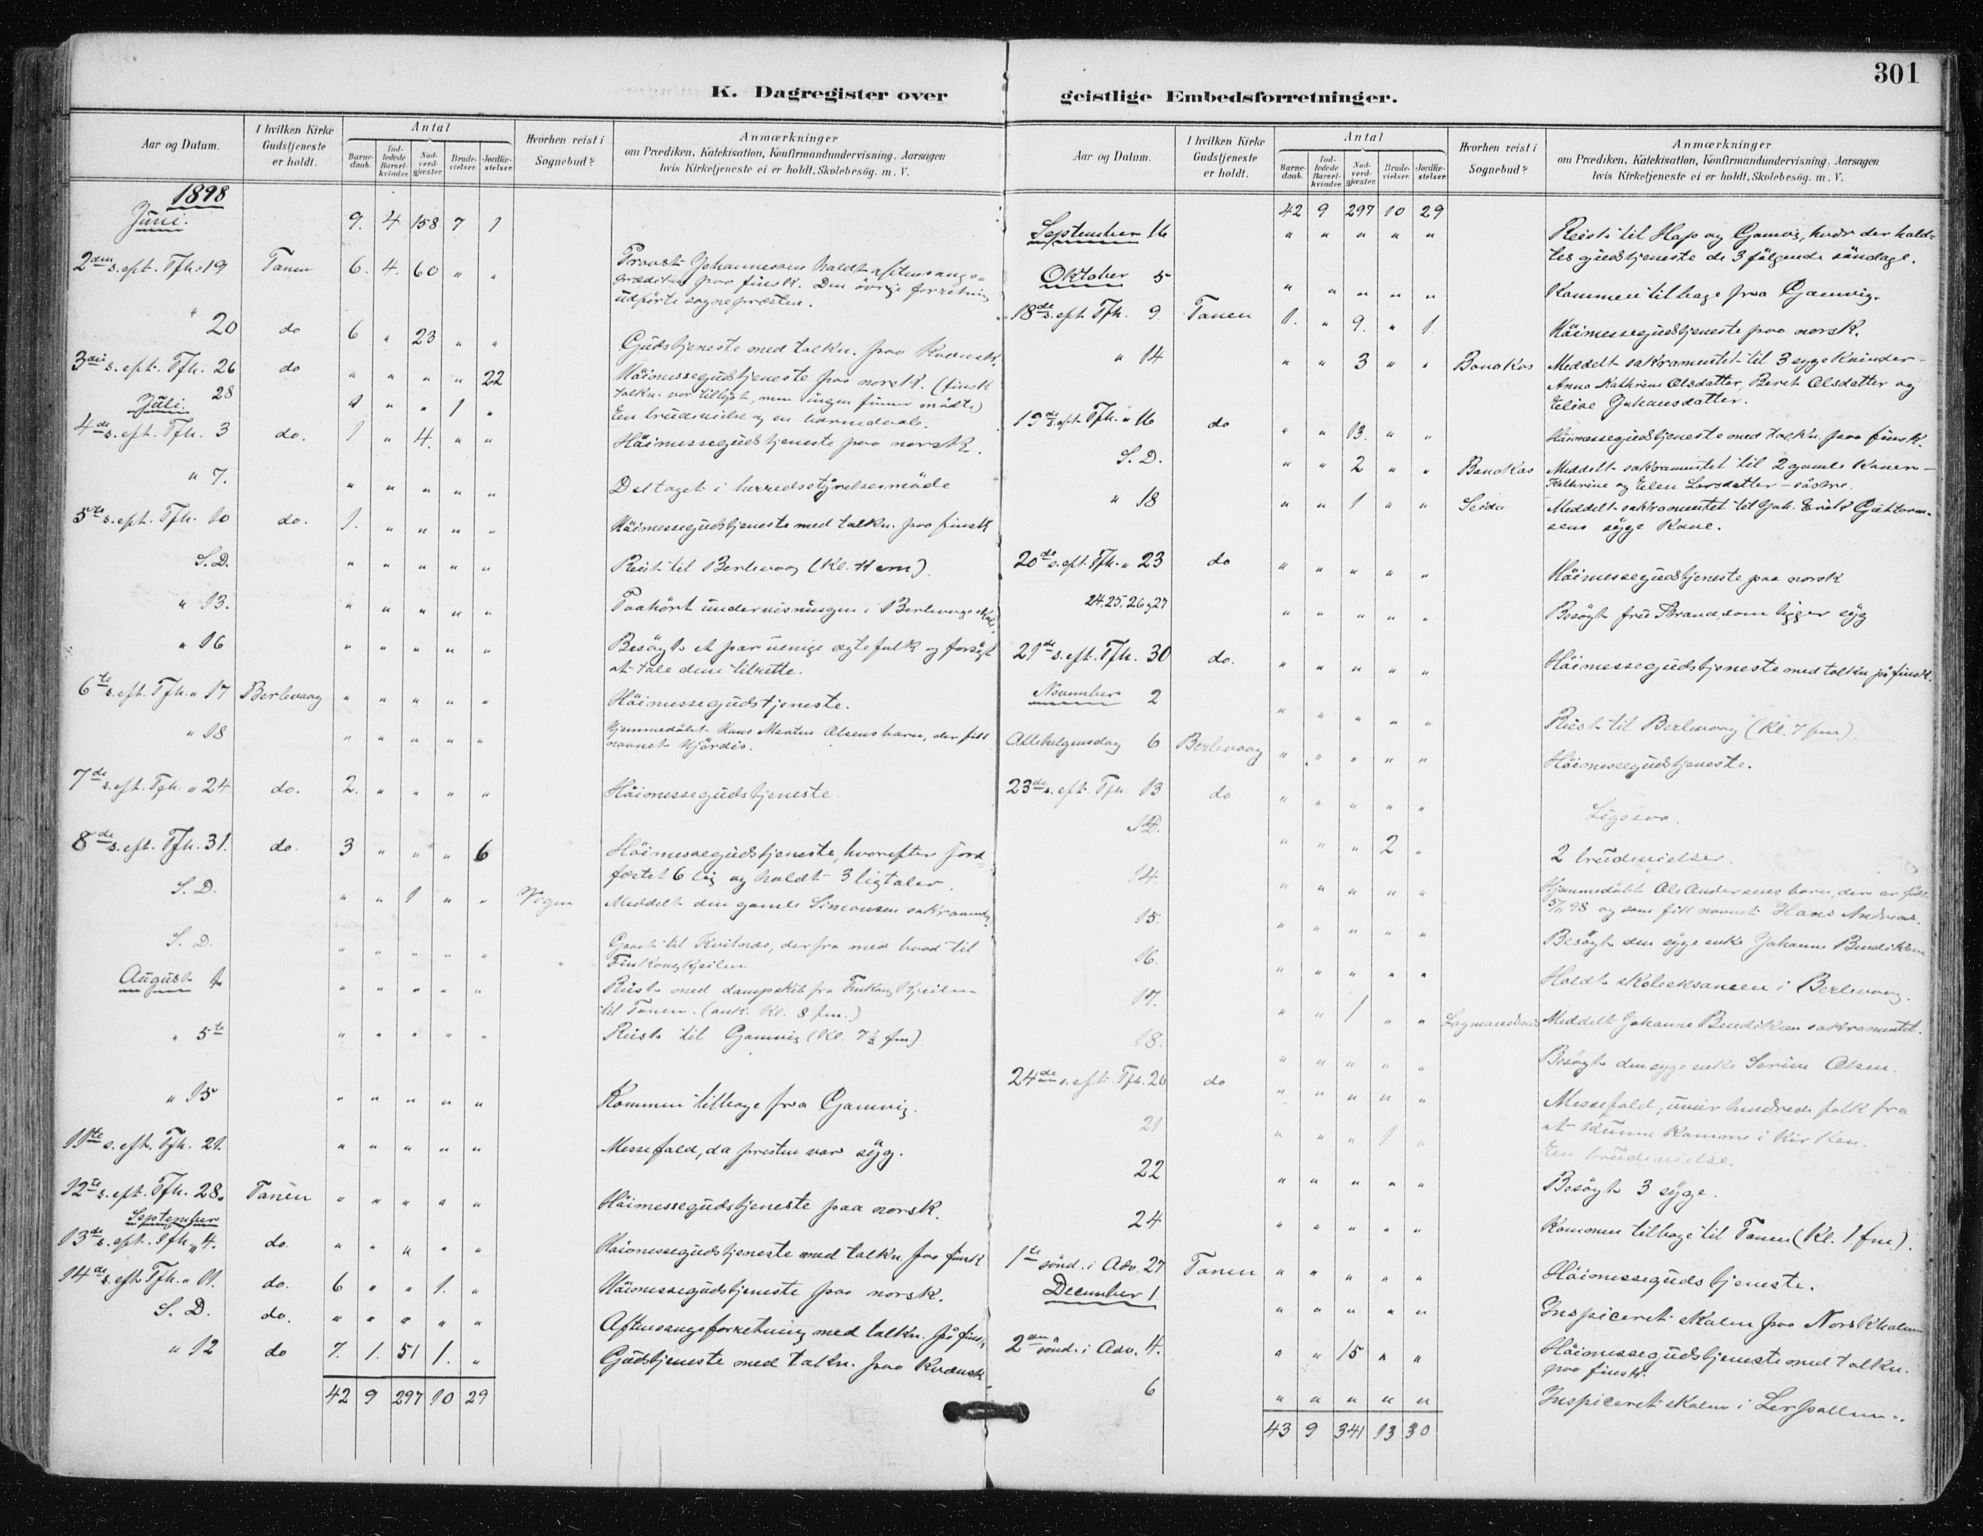 301
K. Dagregister over
Aar og Datum. I hvilken Kirke Gudstjeneste er holdt. Antal Barnedaab. Indledede Barselkvinder Nadverdgjæster. Brudevielser. Jordfæstelser Hvorhen reist i Sognebud? Anmærkninger
om Prædiken, Katekisation, Konfirmandundervisning, Aarsagen
hvis Kirketjeneste ei er holdt, Skolebesøg. m. V.
1898
Juni. 9. 4 158 7 1
2den s. eft. Tfh. 19 Tanen 6. 4. 60 " " Provst Johannesens holdt aftensangs-
prædiken paa finsk. Den övrige forretning
udförte sognepræsten.
" 20 do 6 " 23 " " Gudstjeneste med tolkn. paa Kvænsk.
3die s. eft. Tfh. 26 do " " " " 22 Höimessegudstjeneste paa norsk. (finsk
tolkn. var tillyst, men ingen finner mödte)
28 " " 1 " En brudevielse og en barnedaab.
Juli
4de s. eft. Tfh. 3 do. 1 " 4. " " Höimessegudstjeneste paa norsk.
" 7. " " " " " Deltaget i herredsstyrelsesmöde
5te s. eft. Tfh. 10 do. 1. " " " " Höimessegudstjeneste med tolkn. paa finsk
S. D. " " " " " Reist til Berlevaag (Kl. 11 em).
" 13. " " " " " Paahört undervisningen i Berlevaags skole.
" 16 " " " " " Besögt et par uenige ægtefolk og forsögt
at tale dem tilrette.
6te s. eft. Tfh. " 17 Berlevaag " " " " " Höimessegudstjeneste.
" 18 " " " " " Hjemmedöbt Hans Martin Olsens barn, der fikk
navnet Hjördis.
7de s. eft. Tfh. " 24 do. 2. " " " " Höimessegudstjeneste.
8de s. eft. Tfh. 31. do. 3 " " " 6 Höimessegudstjeneste, hvorefter jord
fæstet 6 lig og holdt 3 ligtaler.
S. D. " " 1 " " Meddelt den gamle Simonsen sakramentet
S. D. " " " " " til Kvitnæs, derfra med baad til
Finkongkjeilen
August 4 " " " " " Reist med dampskib fra Finkongkjeilen
til Tanen. (ank. Kl. 8 fm.)
" 5te " " " " " Reist til Gamvig (Kl. 7½ fm).
" 15 " " " " " Kommen tilbage fra Gamvig.
11te s. eft. Tfh. 21. " " " " " Messefald, da presten var syg.
12te s. eft. Tfh. 28. Tanen " " " " " Höimessegudstjeneste paa norsk.
September
13de s. eft. Tfh. " 4. do. " " " " " Höimessegudstjeneste med tolkn. paa finsk
14de s. eft. Tfh. " 11. do. 6 " " 1. " Höimessegudstjeneste paa norsk.
S. D. do. " " " " " Aftensangsforretning med tolkn. på finsk
" 12 do 7. 1. 51 1. " Gudstjeneste med tolkn. paa Kvænsk
42 9 297 10 29
geistlige Embedsforretninger.
Aar og Datum. I hvilken Kirke Gudstjeneste er holdt. Antal Barnedaab. Indledede Barselkvinder. Nadverdgjæster. Brudevielser Jordfæstelser. Hvorhen reist i Sognebud? Anmærkninger
om Prædiken, Katekisation, Konfirmandundervisning, Aarsagen
hvis Kirketjeneste ei er holdt, Skolebesøg. m. V.
42 9 297 10 29
September 16 " " " " " Reist til Hop og Gamvig, hvor der hold-
tes gudstjeneste de 3 fölgende söndage.
Oktober 5 " " " " " Kommen tilbage fra Gamvig.
18de s. eft. Tfh. 9 Tanen 1. " 9. " 1. Höimessegudstjeneste paa norsk.
" 14 " " 3 " " Bonakas Meddelt sakramentet til 3 syge Kvinder -
Anna Kathrine Olsdatter, Beret Olsdatter og
Elise Johansdatter.
19de s. eft. Tfh. " 16 do " " 13. " " Höimessegudstjeneste med tolkn. paa finsk.
S. D. " " 2 " " Bonakas Meddelt sakramentet til 2 gamle Koner -
Kathrine og Elen Larsdatter - söstre.
" 18 " " 1 " " Seida Meddelt sakramentet til Joh. Erik
sens syge Kone.
20de s. eft. Tfh. " 23 do " " " " " Höimessegudstjeneste paa norsk
24. 25. 26 og 27 " " " " " Besögt fru Strand, som ligger syg
21de s. eft. Tfh. 30 do. " " " " " Höimessegudstjeneste med tolkn på finsk.
November 2 " " " " " Reist til Berlevaag (Kl. 7 fm).
Allehelgensdag 6 Berlevaag " " " " " Höimessegudstjeneste.
23de s. eft. Tfh. 13 do " " " " " Ligesaa.
S. D. " " " 2 " 2 brudevielser.
14. " " " " " Hjemmedöbt Ole Andersens barn, der er födt
5/11 98 og som fik navnet Hans Andreas.
15. " " " " " Besögt den syge enke Johanne Bendiksen
16. " " " " " Holdt skoleeksamen i Berlevaag.
17. " " 1 " " Meddelt Johanne Bendiksen sakramentet.
18. " " " " " Besögt den syge enke Serine Olsen.
24de s. eft. Tfh. 20 do " " " " " Messefald, uveir hindrede folk fra
at kunne Komme i Kirken.
21 " " " 1 " En brudevielse.
22 " " " " " Besögt 3 syge.
24 " " " " " Kommen tilbage til Tanen (Kl. 1 fm).
1te sönd. i Adv. 27 Tanen " " " " " Höimessegudstjeneste.
December 1 " " " " " Inspiceret skolen paa Norskholmen
2den sönd. i Adv. 4. " " 15 " " Höimessegudstjeneste med tolkn.
paa finsk.
6 " " " " " Inspiceret skolen i Lerpollen.
43 9 341 13 30